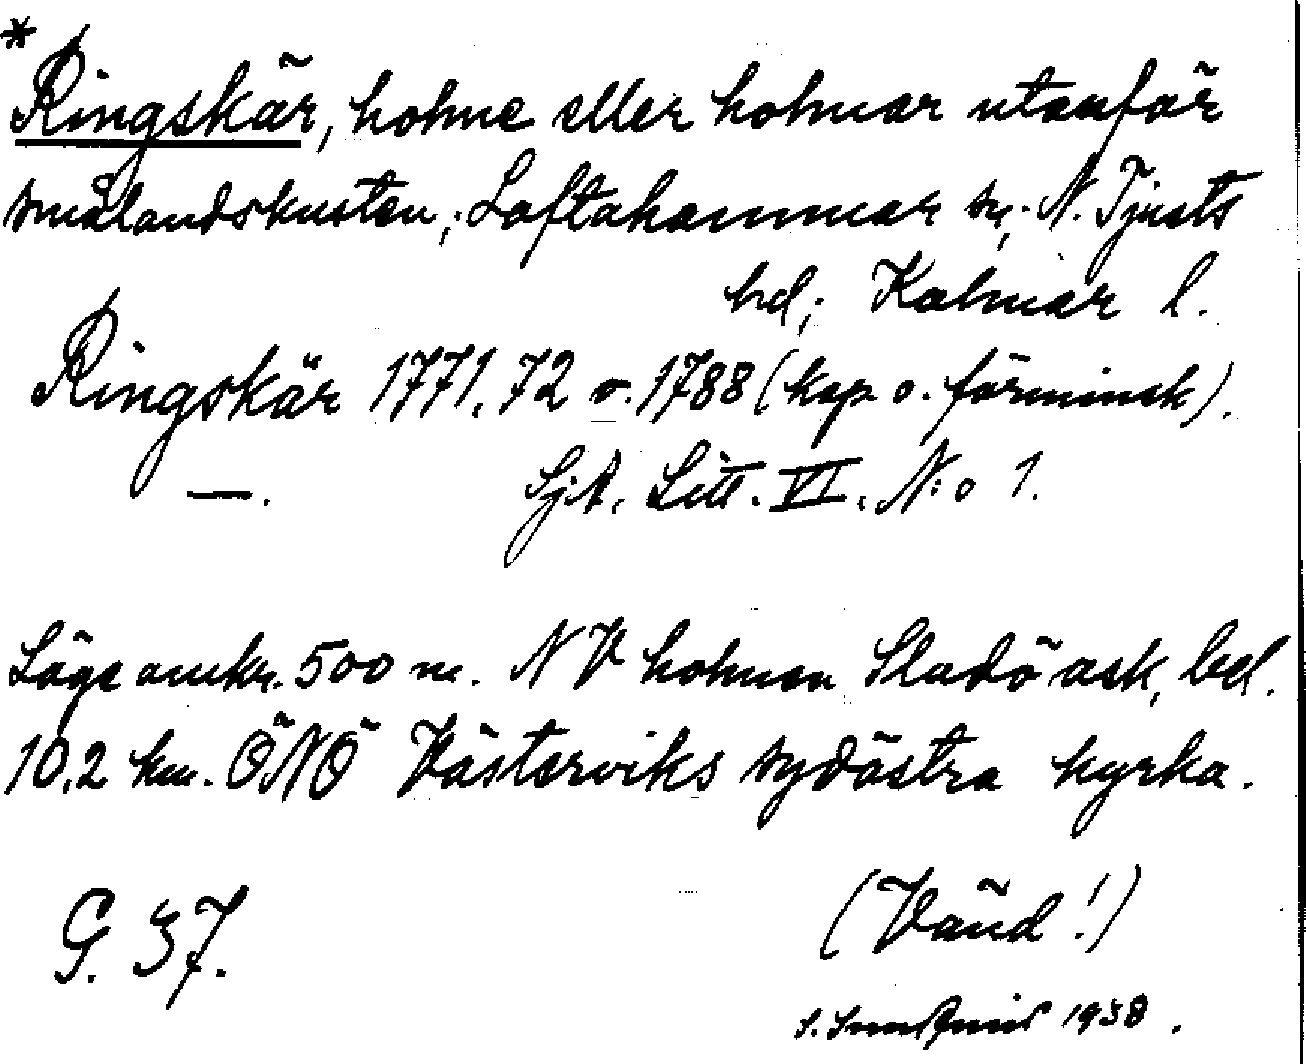 *
Ringskär, holme eller holmar utanför
smålandskusten; Loftahammar sn; N. Tjusts
hd; Kalmar l.
Ringskär 1771.72 o. 1788 (kop. o. förminsk).
—. Sj.A. Litt. VI. N:o 1.
Läge omkr. 500 m. NV holmen Sladö ask, bel.
10,2 km. ÖNÖ Västerviks sydöstra kyrka.
G. 37. (Vänd!)
S. 1938.